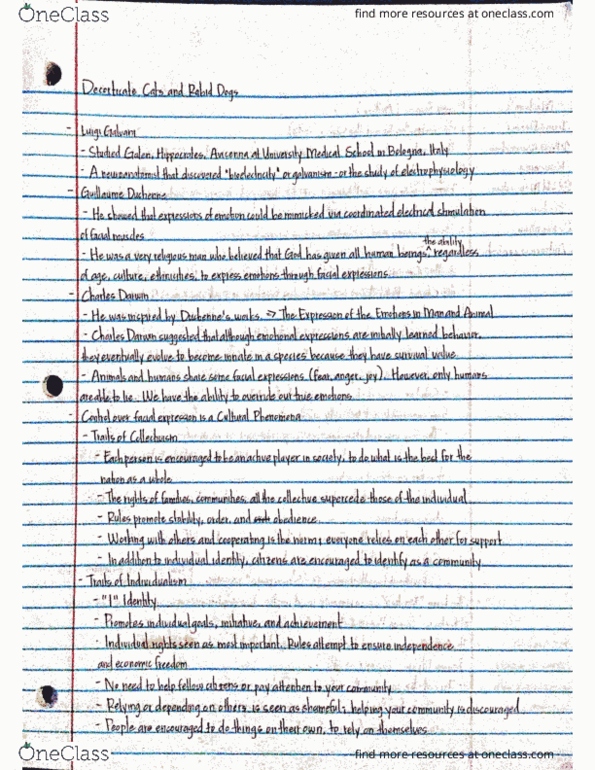 OneClass
find more resources at oneclass.com
Decorticate Cats and Rabid Dogs
- Luigi Galvani
- Studied Galen, Hippocrates, Avicenna at University Medical School in Bologna, Italy
- A neuroanatomist that discovered "bioelectricity" or galvanism - or the study of electrophysiology
- Guillaume Duchenne
- He showed that expressions of emotion could be mimicked via coordinated electrical stimulation
of facial muscles
the ability
- He was a very religious man who believed that God has given all human beings, ^ regardless
of age, culture, ethnicities, to express emotions through facial expressions.
- Charles Darwin
- He was inspired by Duchenne's works. => The Expression of the Emotions in Man and Animal
- Charles Darwin suggested that although emotional expressions are initially learned behavior,
they eventually evolve to become innate in a species because they have survival value
- Animals and humans share some facial expressions. (fear, anger, joy). However, only humans
are able to lie. We have the ability to override our true emotions.
- Control over facial expression is a Cultural Phenomena
- Traits of Collectivism
- Each person is encouraged to be an active player in society, to do what is the best for the
nation as a whole
- The rights of families, communities, all the collective supercede those of the individual
- Rules promote stability, order, and obedience
- Working with others and cooperating is the norm; everyone relies on each other for support
- In addition to individual identity, citizens are encouraged to identify as a community
- Traits of Individualism
- "I" Identity
- Promotes individual goals, initiative, and achievement
- Individual rights seen as most important. Rules attempt to ensure independence
and economic freedom
- No need to help fellow citizens or pay attention to your community
- Relying or depending on others is seen as shameful; helping your community is discouraged
- People are encouraged to do things on their own, to rely on themselves
OneClass
find more resources at oneclass.com